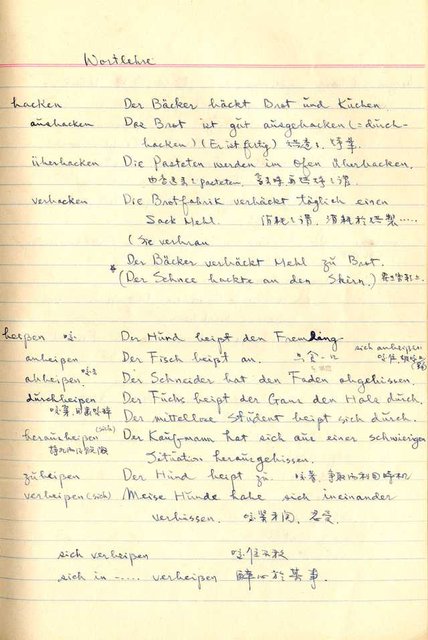 Wortlehre
hacken Der Bäcker häckt Brot und Kuchen.
aushacken Das Brot ist gut ausgehacken (= durch-
hacken) (Er ist fertig)
überhacken Die Pasteten werden im Ofen überhacken.
verhacken Die Brotfabrik verhäckt täglich einen
Sack Mehl.
(Sie verbrau
* Der Bäcker verhäckt Mehl zu Brot.
(Der Schnee hackte an den Skiern.)
heipen 咬 Der Hund heipt den Fremdling
sich anheipen
anheipen Der Fisch heipt an.
abheipen Der Schneider hat den Faden abgehissen.
durchheipen Der Fuchs heipt der Gans den Hals durch.
Der mittellose Student heipt sich durch.
herausheipen (sich) Der Kaufmann hat sich aus einer schwierigen
Situation herausgehissen.
zuheipen Der Hund heipt zu.
verheipen (sich) Meise Hunde habe sich ineinander
verhissen. 咬緊牙關, 忍受.
sich verheipen 咬住不放
sich in ..... verheipen 醉心於某事.